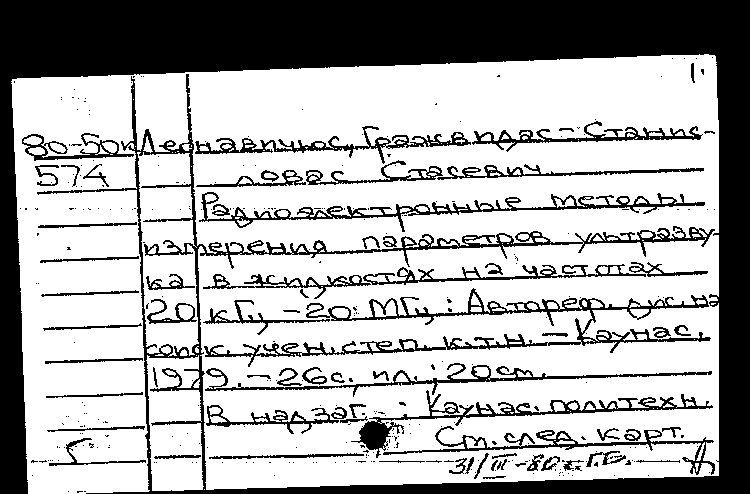 1.
80-50к Леонавичюс, Гражвидас-Станис-
574 ловас Стасевич.
Радиоэлектронные методы
измерения параметров ультразву-
ка в жидкостях на частотах
20 кГц - 20 МГц : Автореф. дис. на
соиск. учен. степ. к.т.н. - Каунас,
1979. - 26с., ил. ; 20см.
В надзаг. : Каунас. политехн.
См. след. карт.
31/III-80 г. Г.Б.